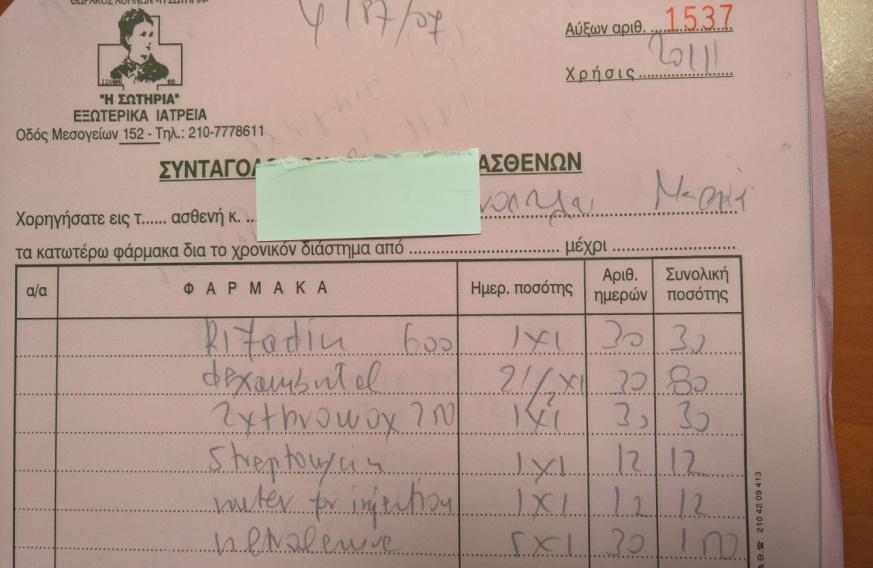 ΘΩΡΑΚΟΣ ΑΘΗΝΩΝ "Η ΣΩΤΗΡΙΑ"
"Η ΣΩΤΗΡΙΑ"
ΕΞΩΤΕΡΙΚΑ ΙΑΤΡΕΙΑ
Οδός Μεσογείων 152 - Τηλ.: 210-7778611
Αύξων αριθ. 1537
Χρήσις
ΑΣΘΕΝΩΝ
Χορηγήσατε εις τ...... ασθενή κ. ..
τα κατωτέρω φάρμακα δια το χρονικόν διάστημα από ........ μέχρι ........
α/α ΦΑΡΜΑΚΑ Ημερ. ποσότης Αριθ. ημερών Συνολική ποσότης
Rifadin 600 1X1 30 30
dexambutol 2 1/2 X1 30 80
1X1 30 30
Streptomycin 1X1 12 12
water for injection 1X1 12 12
5X1 30 150
210 42 09 413